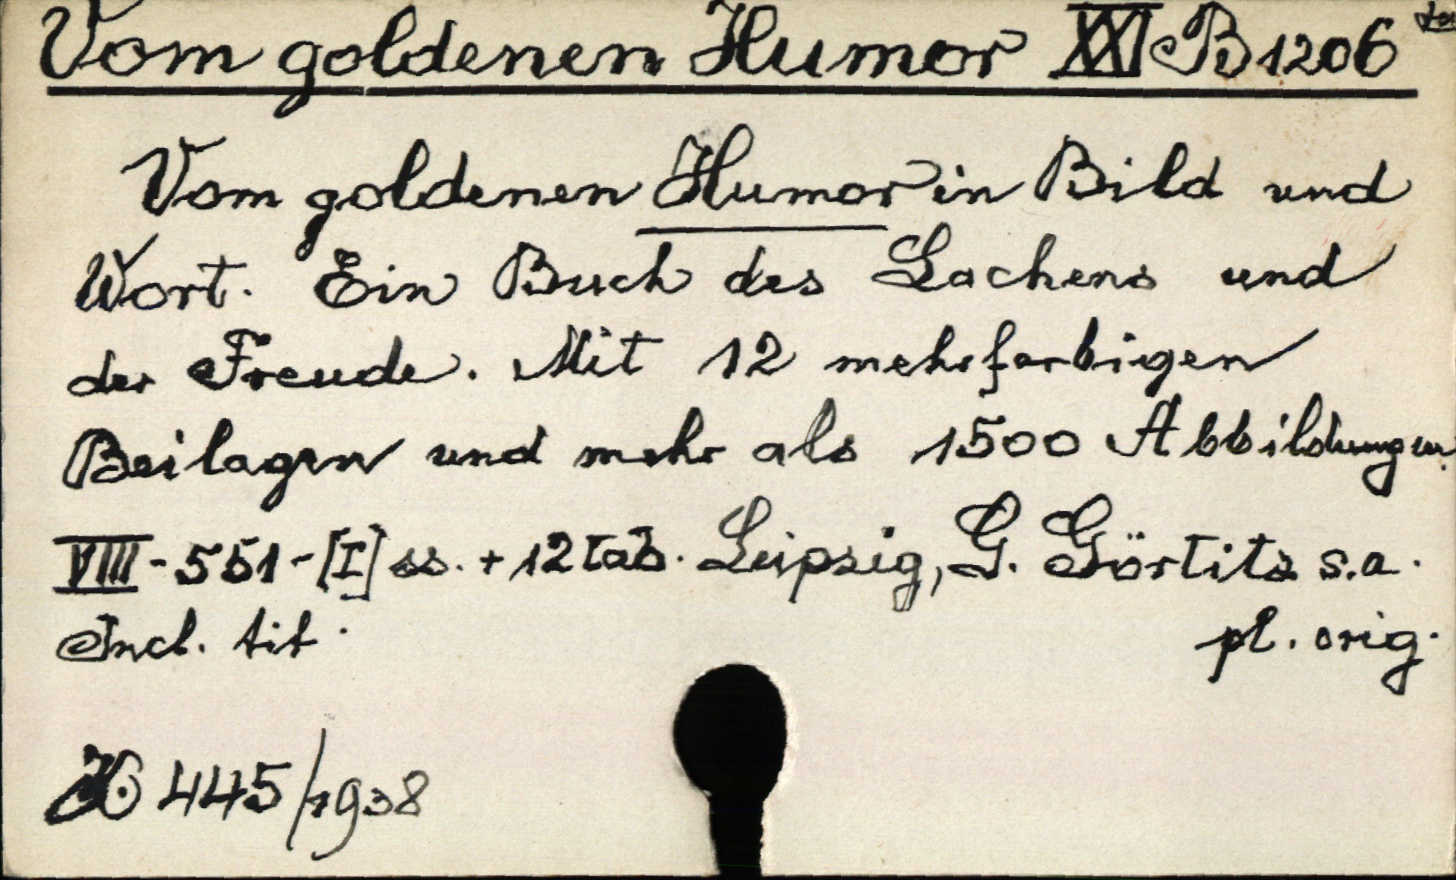 Vom goldenen Humor XXI B 1206
Vom goldenen Humor in Bild und
Wort. Ein Buch des Lachens und
der Freude. Mit 12 mehrfarbigen
Beilagen und mehr als 1500 Abbildungen.
VIII-551-[I] ss. + 12 tab. Leipzig, G. Görlitz s.a.
Incl. tit. pl. orig.
445/1938